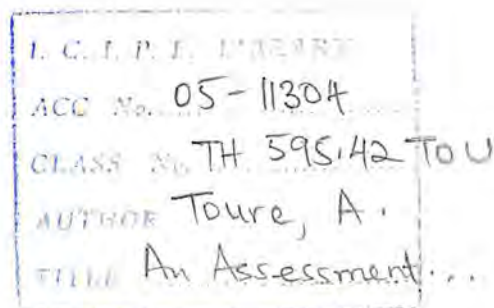 I. C. I. P. E. LIBRARY
ACC No. 05-11304
CLASS No. TH 595.42 TOU
AUTHOR Toure, A.
TITLE An Assessment...